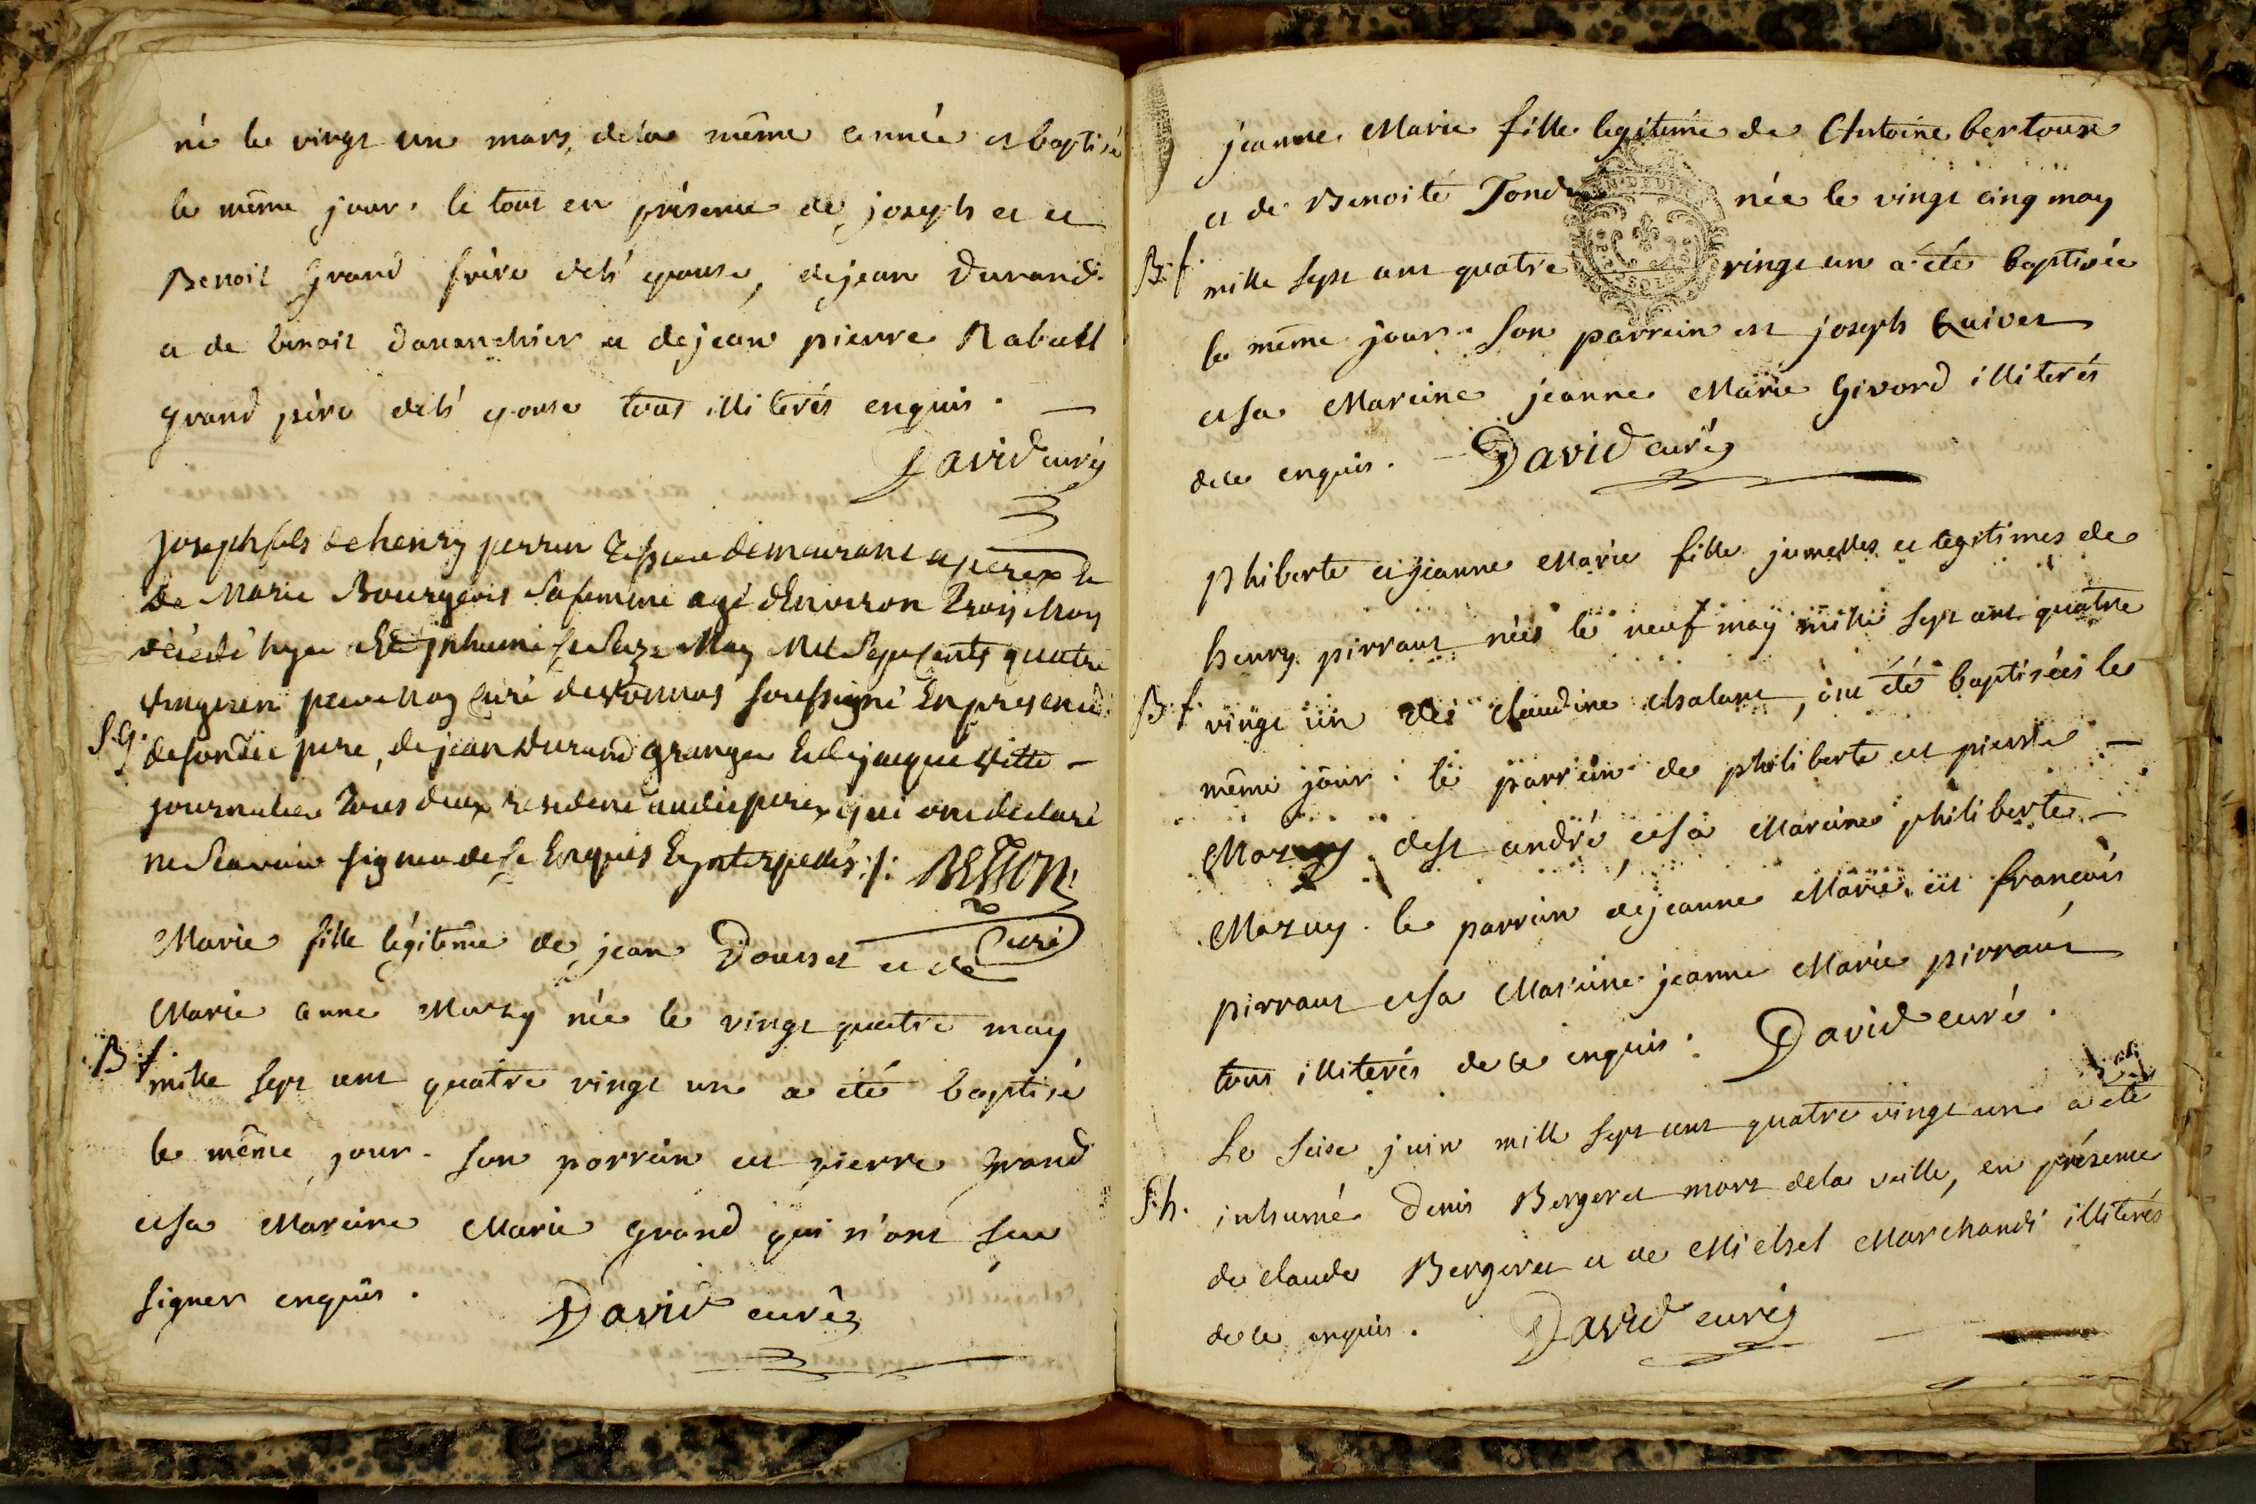 né le vingt un mars, dela même année et baptisé
le même jour. le tout en présence de joseph et et
Benoit Grand frère delé epouse, dejean Durand.
et de benoit Davanchier et dejean pierre Rabuel
grand père delé epouse tous illiterés enquis.
David curé
joseph fils de henry perrin demeurant a perex &
de Marie Bourgeois sa femme agé dEnviron Trois Moy
décédé hyer Et jnhumé le Seize May Mil Sept Cents quatre
vingt un par Moy Curé de Vonnas Soussigné En presence
S.G.
desondit pere, de jean Durand Granger Et dejacque Vitte
journalier Tous deux residents audit perex qui ont declaré
ne Scavoir signer de ce Enquis Et jnterpellés ./. BESSON
Curé
Marie fille légitime de jean Dousset et de
Marie anne Mazuy née le vingt quatre may
B.f.
mille sept cent quatre vingt un a eté baptisé
le même jour. son parrein est pierre grand
et sa Mareine Marie grand qui n'ont seu
signer enquis.
David curé
jeanne Marie fille legitime de Antoine bertoux
et de Benoite née le vingt cinq may
B.f.
mille sept cent quatre vingt un a été baptisée
le même jour. son parrein est joseph Quivet
et sa Mareine jeanne Marie Givord illiterés
dece enquis. David curé
Phiberte et jeanne Marie fille jumelles et legitimes de
henry pirraut nées le neuf may mille sept cent quatre
B.f.
vingt un et de claudine chalant, ont été baptisées le
même jour. le parrein de philiberte est pierre
Mazuy dest andré, et sa Mareine philiberte
Mazuy. le parrein dejeanne Marie est francois
pirraut et sa Mareine jeanne Marie pirraut
tous illiterés de ce enquis. David curé.
Le seise juin mille sept cent quatre vingt un a eté
S.h.
inhumé Denis Bergeret mort dela veille, en présence
de claude Bergeret et de Michel Marchandi illiterés
de ce enquis. David curé